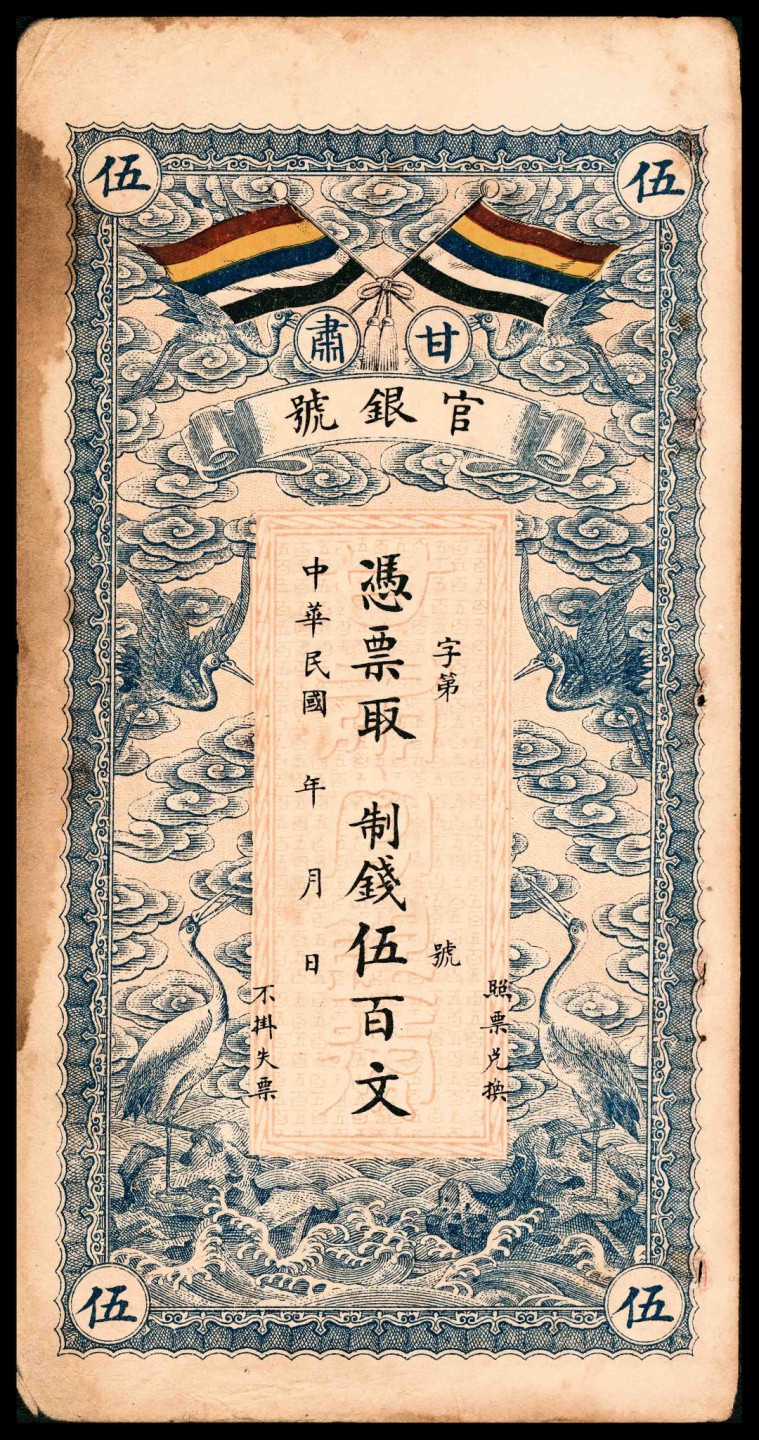 伍
伍
甘肅
官銀號
照票兌換
字第 號
憑票取 制錢伍百文
中華民國 年 月 日
不掛失票
伍
伍